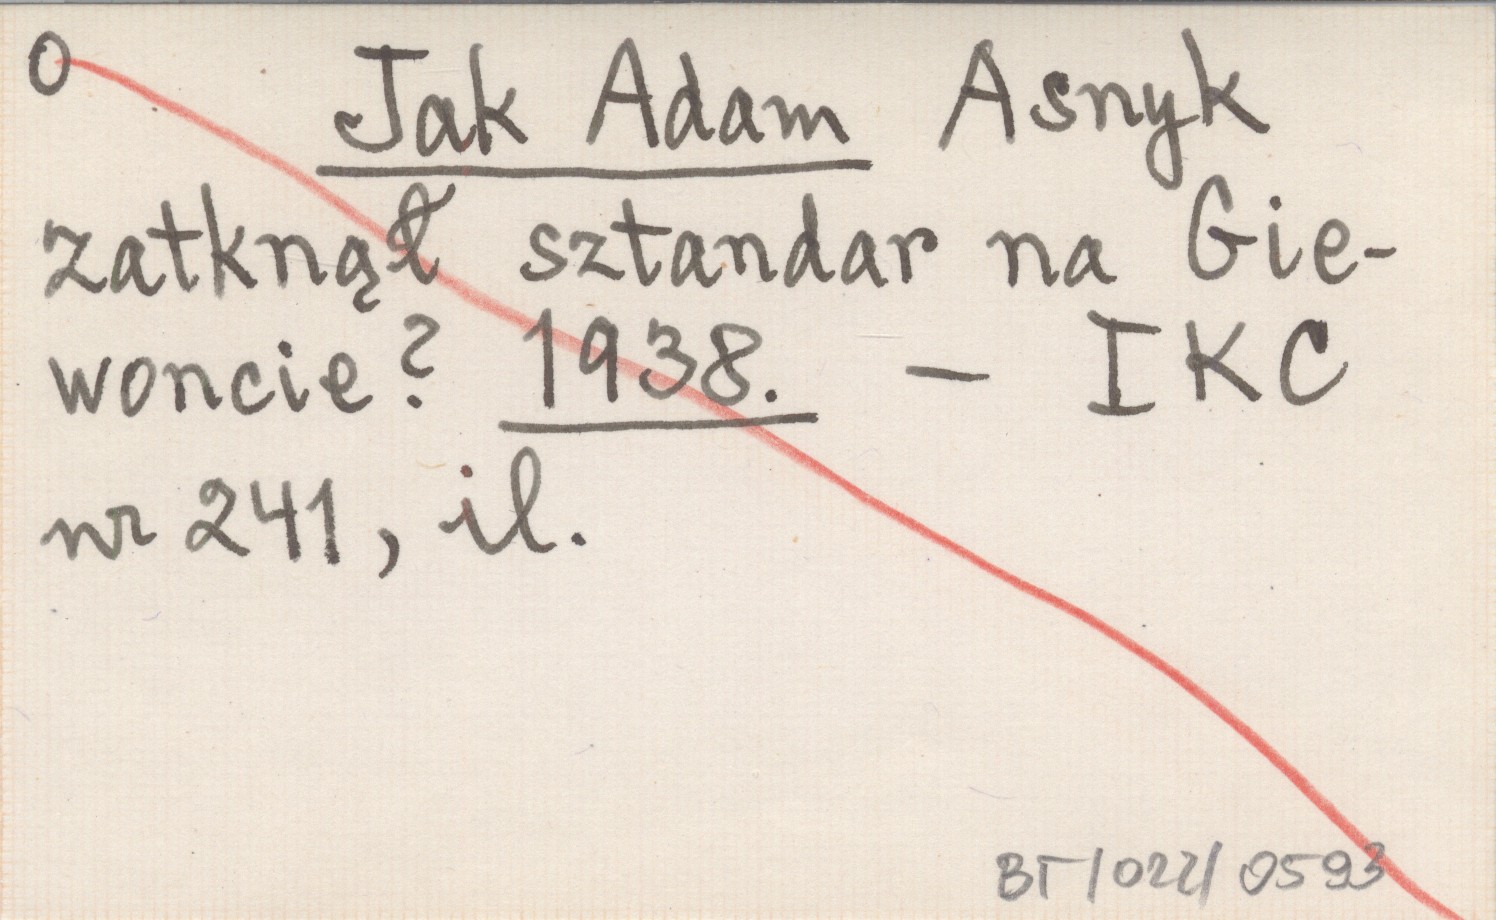 0
Jak Adam Asnyk
zatknął sztandar na Gie-
woncie? 1938. — IKC
nr 241, il.
BT/022/0593